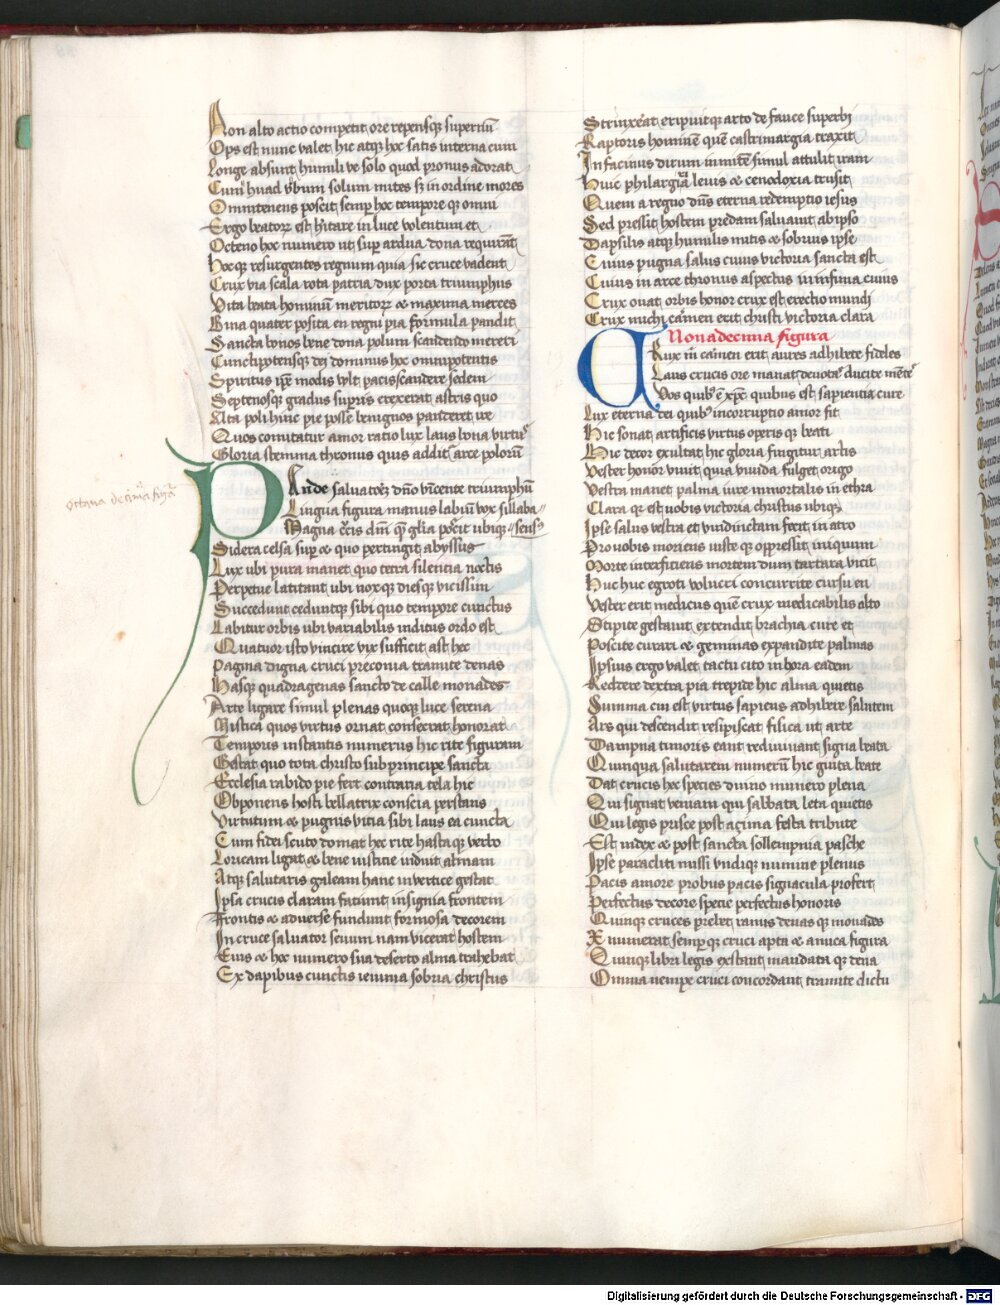 Non alto actio competit ore repensqꝫ superiū
Ops est nunc valet hic atqꝫ hoc satis interna cum
Longe absunt humili ve solo quod pronus adorat
Cum huiad v̄bum solum mites sꝫ in ordine mores
Omnitenens poscit semꝑ hoc tempore qꝫ omni
Ergo beatoꝝ est hītare in luce volentum et
Octeno hoc numero ut suꝑ ardua dona requirāt
Hocqꝫ resurgentes regnum quia sic cruce vadent
Crux via scala rota patria dux porta triumphus
Vita beata hominum meritoꝝ et maxima merces
Bina quater posita en regni pia formula pandit
Sancta bonos bene dona polum scandendo mereri
Cunctipotensqꝫ dei dominus hoc omnipotentis
Spiritus ip̄e modis vult pacis scandere sedem
Septenosqꝫ gradus supris erexerat astris quo
Alta poli hinc pie posse benignos panderet ve
Quos comitatur amor ratio lux laus bona virtus
Gloria stemma thronus quis addit arce polorū
Octaua decīma figura
PAnde saluatoris dn̄o vīcente triumphū
Lingua figura manus labiū vox sillaba
Magna crucis dn̄i qꝫ gl̄ia poscit ubiqꝫ sensꝰ
Sidera celsa suꝑ et quo pertingit abyssus
Lux ubi pura manet quo terra silentia noctis
Perpetue latitant ubi noxqꝫ diesqꝫ vicissim
Succedunt ceduntqꝫ sibi quo tempore cunctus
Labitur orbis ubi variabilis inditus ordo est
Quatuor isto vincire vix sufficit ast hec
Pagina digna cruci preconia tramite denas
Hasqꝫ quadragenas sancto de calle monades
Arte ligare simul plenas quoqꝫ luce serena
Mistica quos virtus ornat consecrat honorat
Temporis instantis numerus hic rite figuram
Gestat quo tota christo sub principe sancta
Ecclesia rabido pie fert contraria tela hic
Obponens hosti bellatrix conscia perstans
Virtutum et pugnis vitia sibi laus ea cuncta
Cum fidei scuto domat hec rite hastaqꝫ verbo
Loricam ligat et bene iusticie induit almam
Atqꝫ salutaris galeam hanc in vertice gestat
Ipsa crucis claram faciunt insignia frontem
Frontis et aduerse fundunt formosa decorem
In cruce saluator seuum nam vicerat hostem
Eius et hoc numero sua deserto alma trahebat
Ex dapibus cunctis ieiunia sobria christus
Strinxerat eripuitqꝫ arto de fauce superbi
Raptoris hominem quē castrimargia traxit
In facinus dirum inmitē simul attulit iram
Huic philargiā leuis et cenodoxia trusit
Quem a regno dn̄s eterna redemptio iesus
Sed pressit hostem predam saluauit ab ipso
Dapsilis atqꝫ humilis mitis et sobrius ipse
Cuius pugna salus cuius victoria sancta est
Cuius in arce thronus aspectus in infima cuius
Crux ouat orbis honor crux est erectio mundi
Crux michi carmen erit christi victoria clara
Nonadecima figura
CRux m̄ carmen erit aures adhibete fideles
Laus crucis ore manat deuotā ducite mētē
Vos quibꝰ e xp̄e quibus est sapientia cure
Lux eterna dei quibꝰ incorruptio amor fit
Hic sonat artificis virtus operis qꝫ beati
Hic decor exultat hic gloria fungitur artis
Vester honor viuit quia viuida fulget origo
Vestra manet palma iure inmortalis in ethra
Clara qꝫ est uobis victoria christus ubiqꝫ
Ipse salus vestra et vindictam fecit in atro
Pro uobis moriens iuste qꝫ oppressit iniquum
Morte interficiens mortem dum tartara vicit
Huc huc egroti volucri concurrite cursu en
Vester erit medicus quē crux medicabilis alto
Stipite gestauit extendit brachia cure et
Poscite curari et geminas expandite palmas
Ipsius ergo valet tactu cito in hora eadem
Reddere dextra pia trepide hic alma quietis
Summa cui est virtus sapiens adhibere salutem
Ars qui descendit resipiscat filica ut arte
Dampna timoris eant rediuiuant signa beata
Quinqua salutarem numerū hic guita beate
Dat crucis hec species diuino munero plena
Qui signat veniam qui sabbata leta quietis
Qui legis prisce post açima festa tribute
Est index et post sancta sollempnia pasche
Ipse paracliti missi vndiqꝫ numine plenus
Pacis amore probus pacis signacula profert
Perfectus decore specie perfectus honoris
Quinqꝫ cruces prelet ramis denas qꝫ monades
X numerat sempꝫqꝫ cruci apta et amica figura
Quinqꝫ libri legis existant mandata qꝫ dena
Omnia nempe cruci concordant tramite dictu
Digitalisierung gefördert durch die Deutsche Forschungsgemeinschaft - DFG